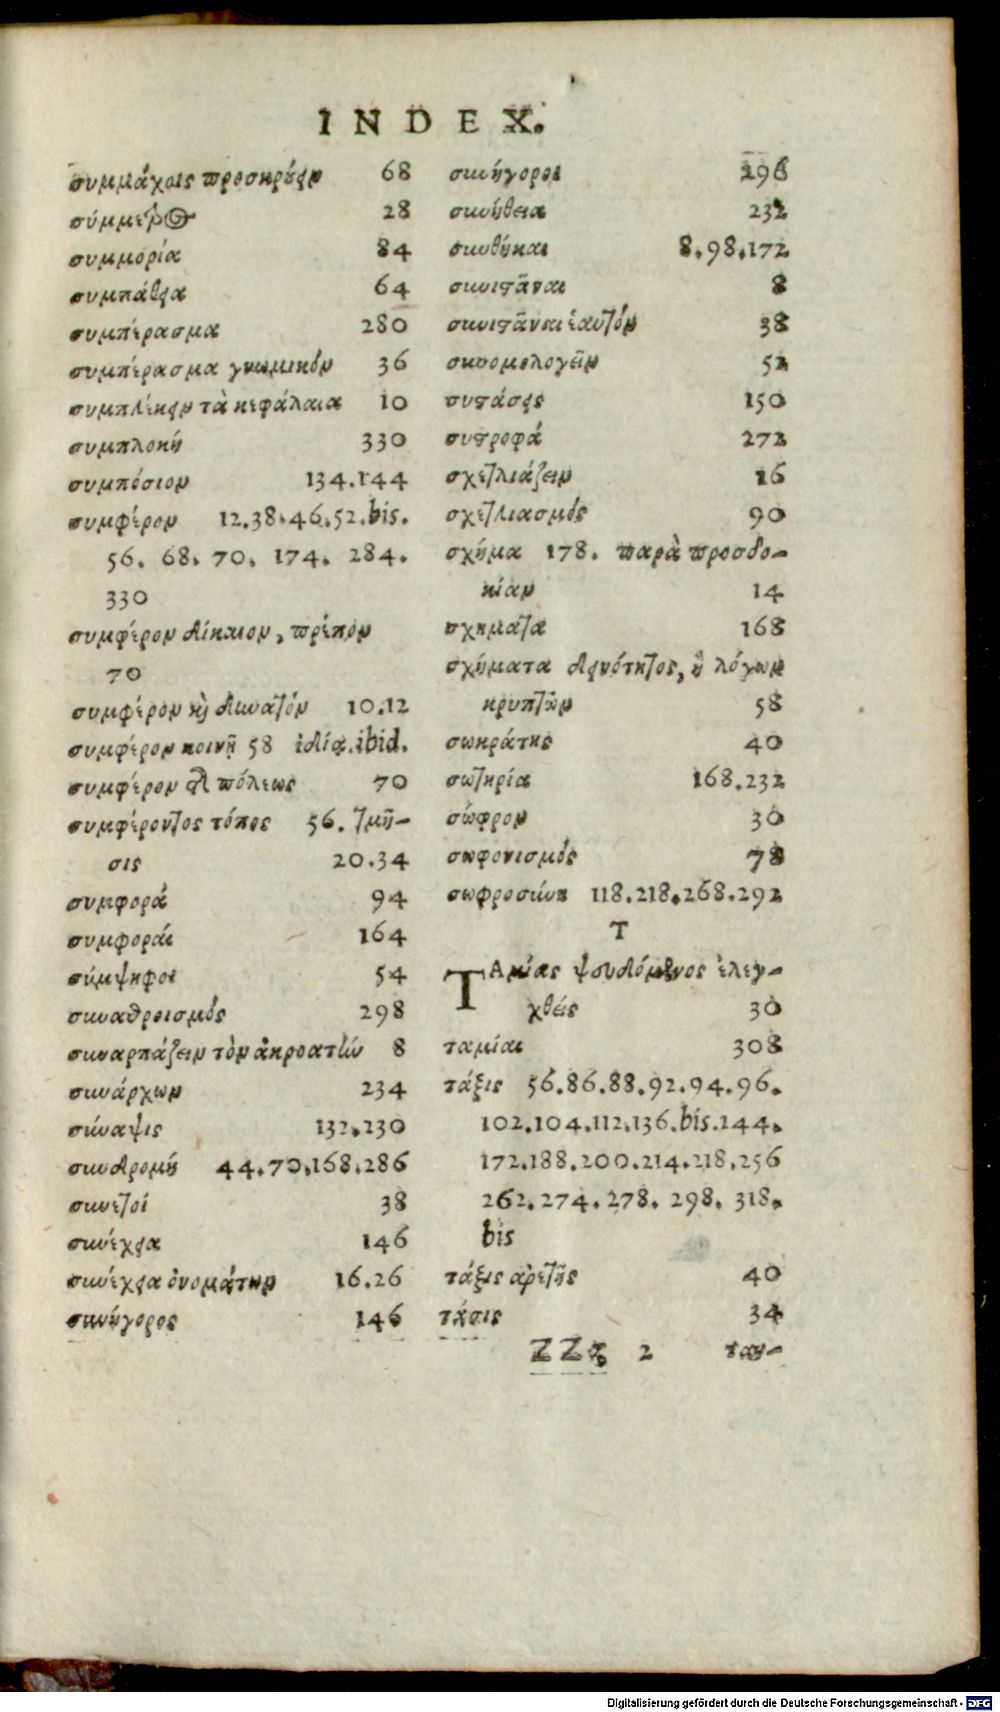 INDEX.
συμμάχοις προσκρούειν 68
σύμμετρος 28
συμμορία 84
συμπάθεια 64
συμπέρασμα 280
συμπέρασμα γνωμικόν 36
συμπλέκειν τὰ κεφάλαια 10
συμπλοκή 330
συμπόσιον 134.144
συμφέρον 12.38.46.52.bis.
56. 68. 70. 174. 284.
330
συμφέρον δίκαιον, πρέπον
70
συμφέρον καὶ δυνατόν 10.12
συμφέρον κοινῇ 58 ἰδίᾳ.ibid.
συμφέρον τῆς πόλεως 70
συμφέροντος τόπος 56. τμῆ-
σις 20.34
συμφορά 94
συμφοραί 164
σύμψηφοι 54
συναθροισμός 298
συναρπάζειν τὸν ἀκροατὴν 8
συνάρχων 234
σύναψις 132.230
συνδρομή 44.70.168.286
συνετοί 38
συνέχεια 146
συνέχεια ὀνομάτων 16.26
συνήγορος 146
συνήγοροι 296
συνήθεια 232
συνθήκαι 8.98.172
συνιστᾶναι 8
συνιστᾶναι ἑαυτόν 38
συνομολογεῖν 52
συστάσεις 150
συστροφά 272
σχετλιάζειν 16
σχετλιασμός 90
σχῆμα 178. παρὰ προσδο-
κίαν 14
σχήματα 168
σχήματα δεινότητος, ἢ λόγων
κρυπτῶν 58
σωκράτης 40
σωτηρία 168.232
σώφρον 30
σωφονισμός 78
σωφροσύνη 118.218.268.292
T
ΤΑμίας ψευδόμενος ἐλεγ-
χθείς 30
ταμίαι 308
τάξις 56.86.88.92.94.96.
102.104.112.136.bis.144.
172.188.200.214.218.256
262.274.278. 298. 318.
bis
τάξις ἀρετῆς 40
τάσις 34
ZZz 2 ταυ-
Digitalisierung gefördert durch die Deutsche Forschungsgemeinschaft - DFG